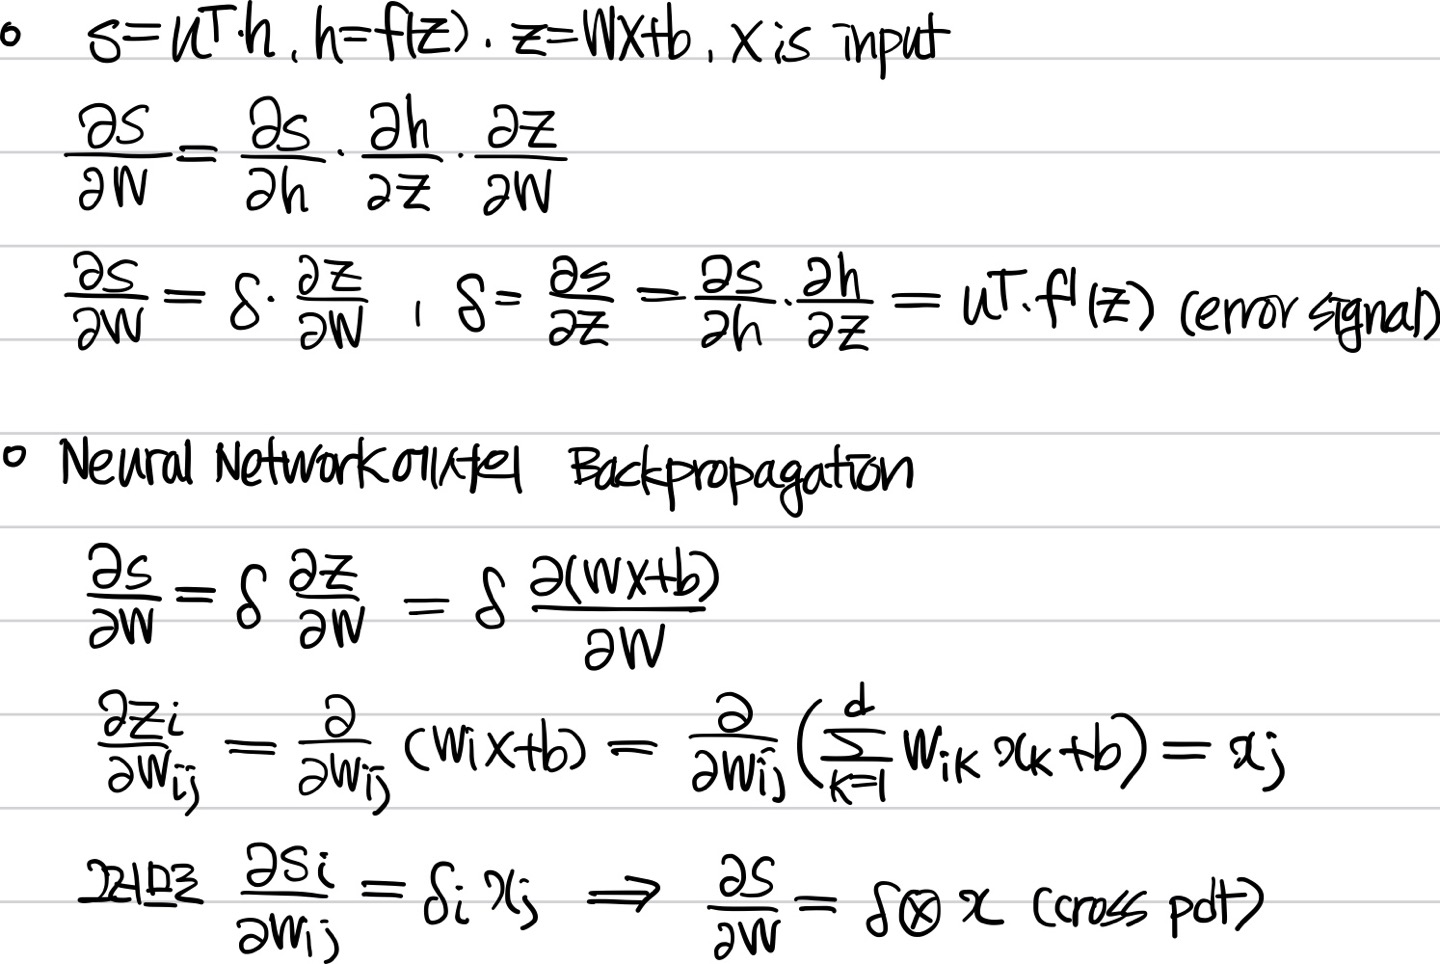 s=u^T·h, h=f(z). z=Wx+b, x is input
∂s/∂W = ∂s/∂h · ∂h/∂z · ∂z/∂W
∂s/∂W = δ · ∂z/∂W , δ = ∂s/∂z = ∂s/∂h · ∂h/∂z = u^T·f'(z) (error signal)
Neural Network에서의 Backpropagation
∂s/∂W = δ ∂z/∂W = δ ∂(Wx+b)/∂W
∂z_i/∂W_ij = ∂/∂W_ij (W_i x+b) = ∂/∂W_ij (∑_{k=1}^{d} W_ik x_k+b) = x_j
그러므로 ∂s_i/∂W_ij = δ_i x_j ⟹ ∂s/∂W = δ⊗x (cross pdt)